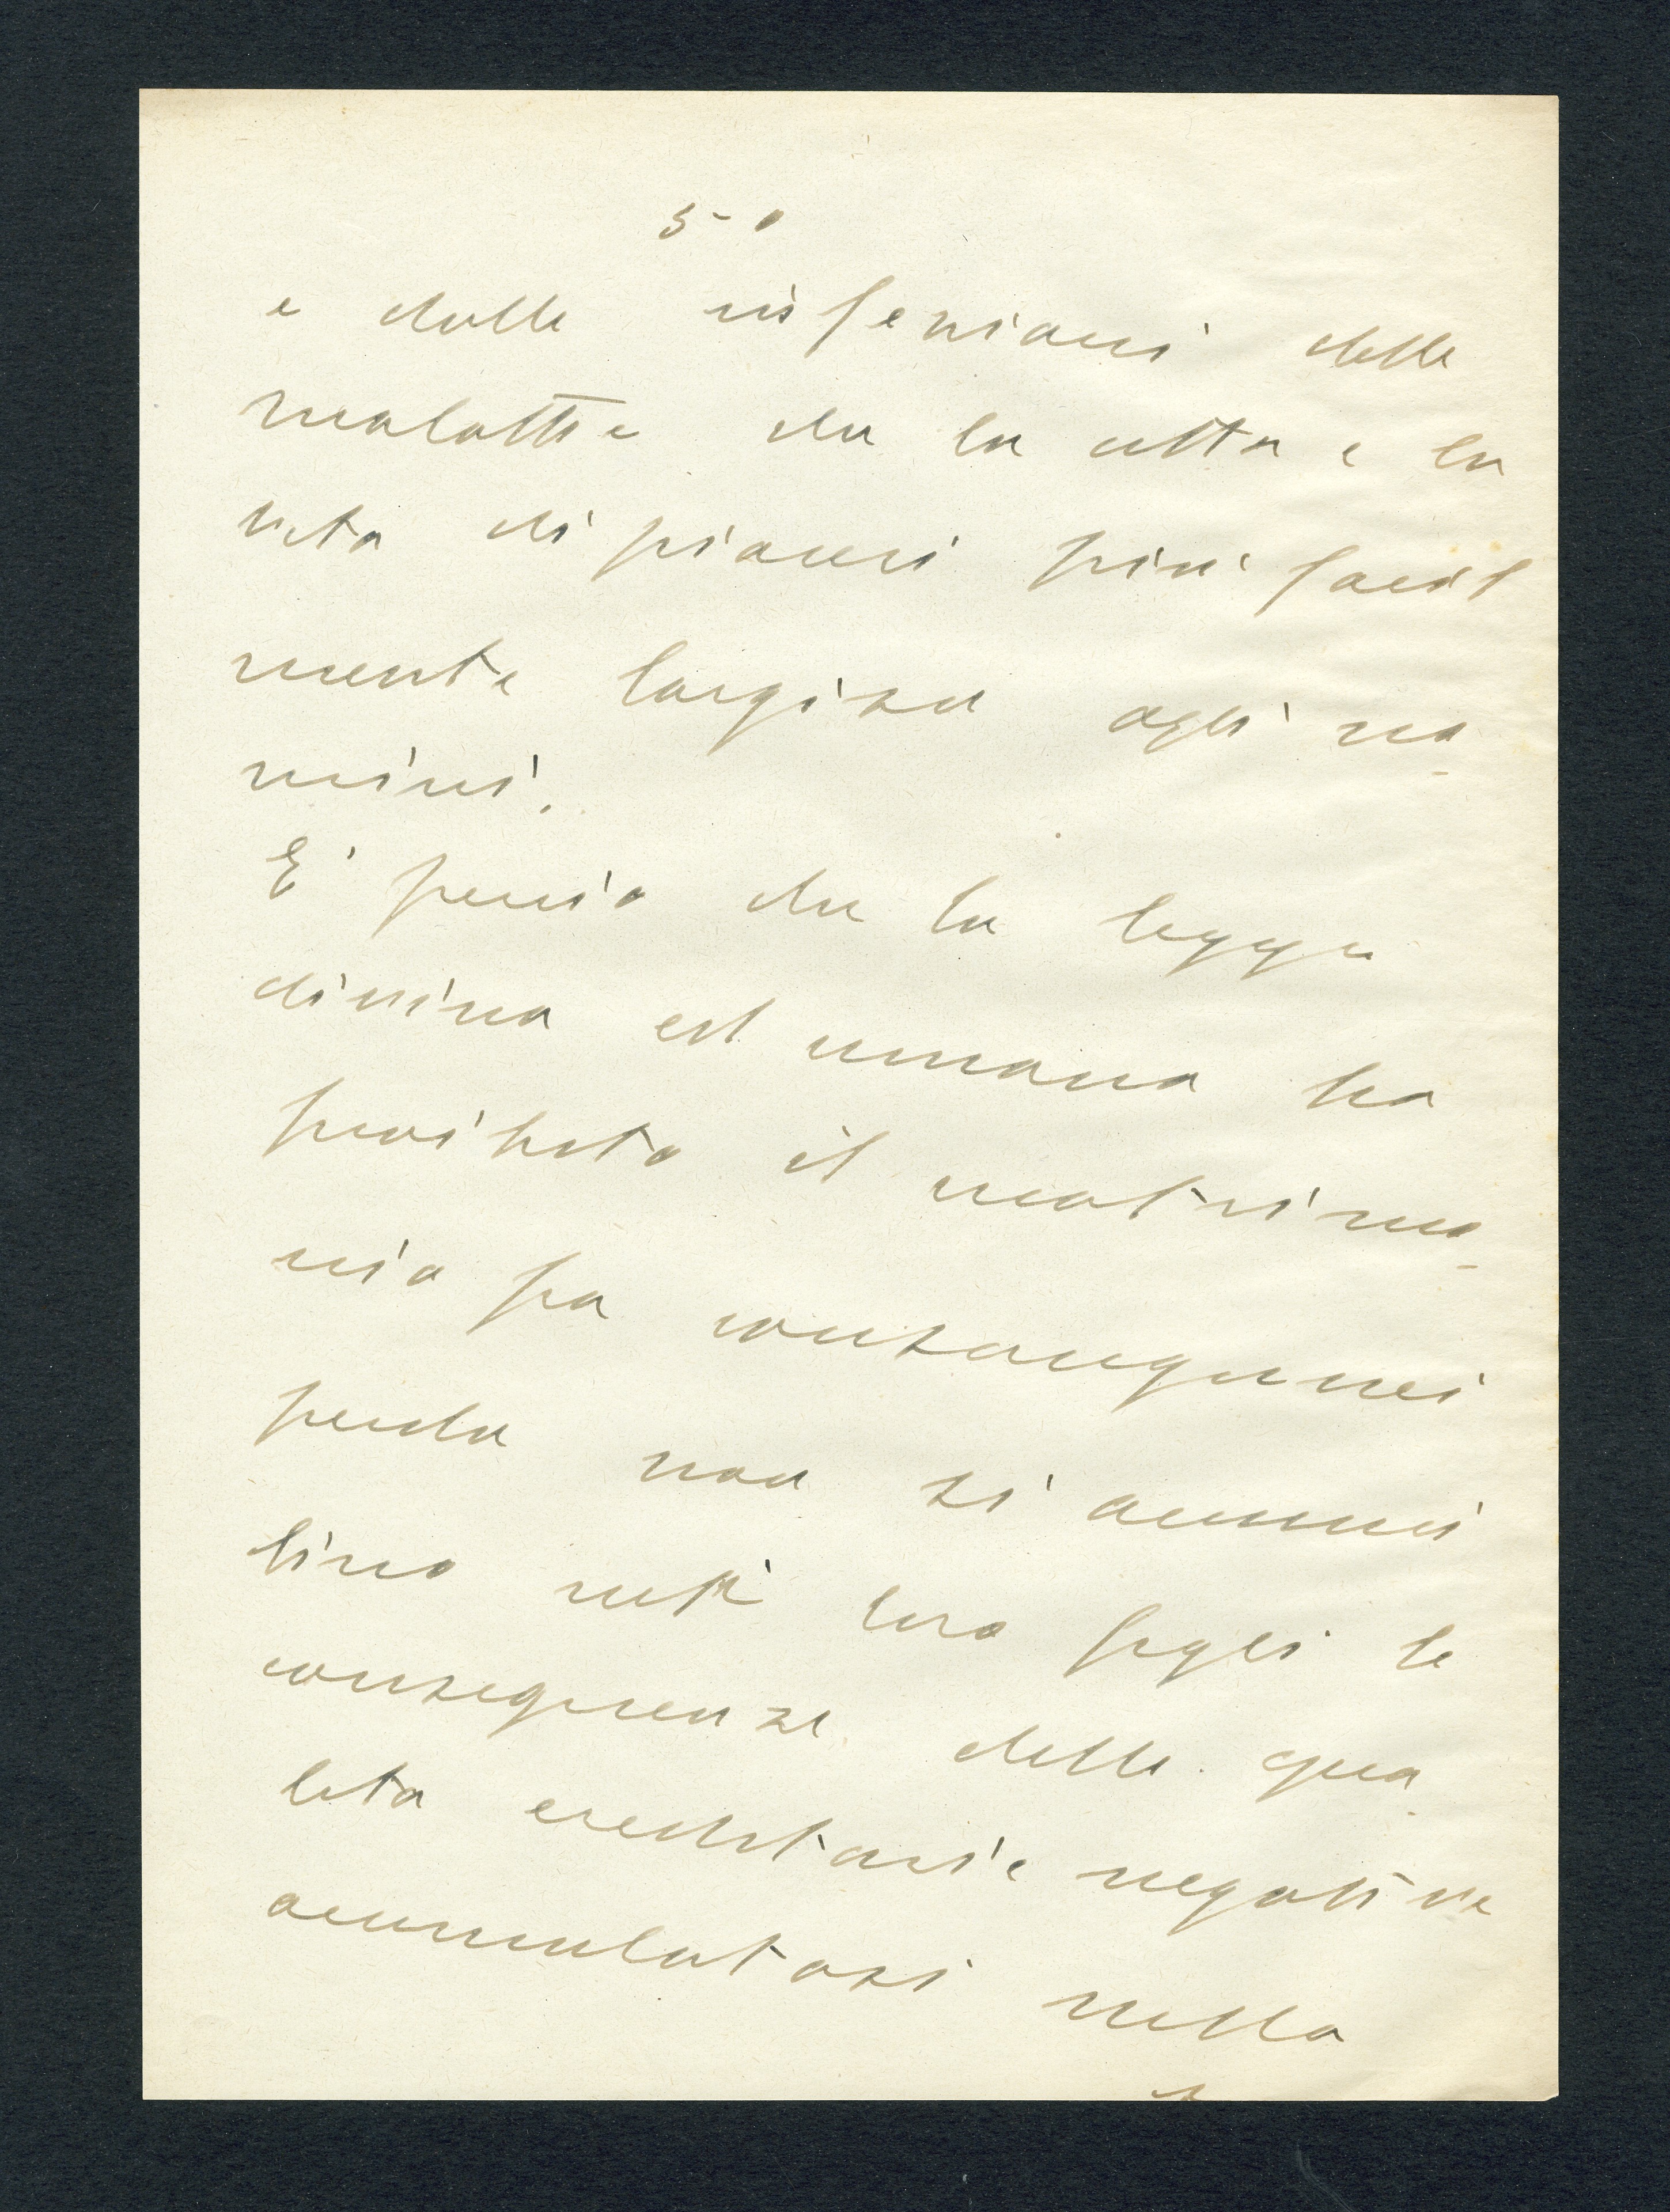 5-0
e dalle infezioni delle
malattie che la città e la
vita di piaceri più facil
mente largisce agli uo-
mini.
E' perciò che la legge
divina ed umana ha
proibito il matrimo-
nio fra consanguinei
perché non si accumu
lino nei loro figli le
conseguenze delle qua-
lità ereditarie negative
accumulatosi nella